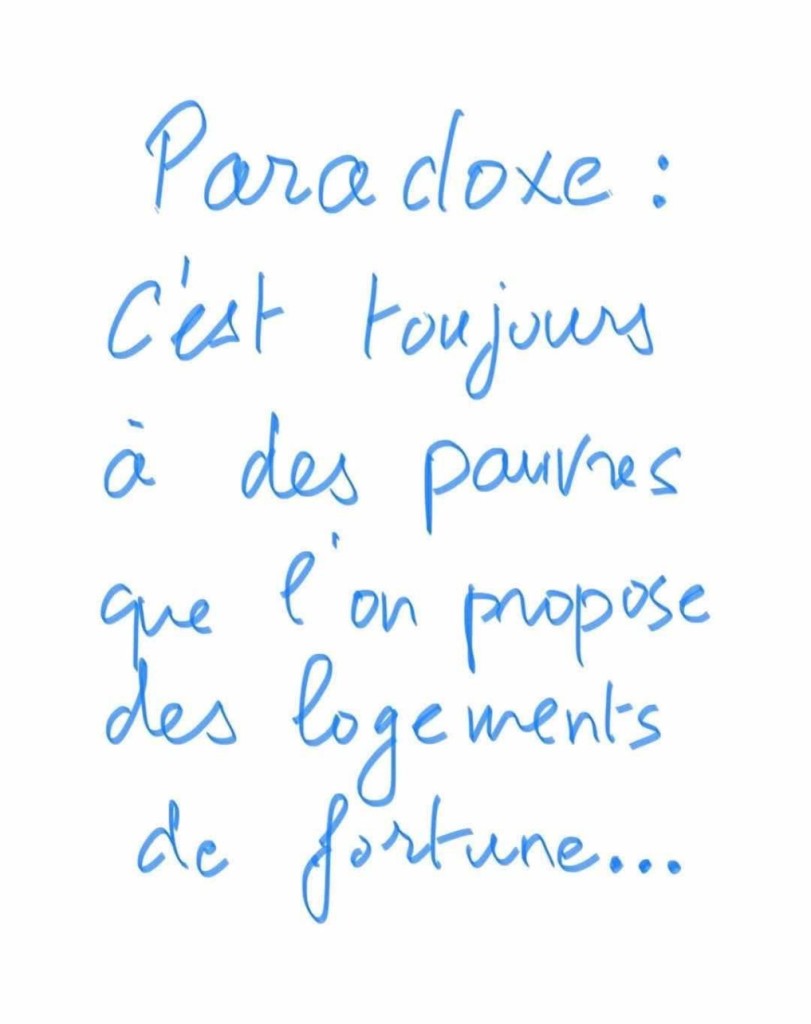 Paradoxe :
C'est toujours
à des pauvres
que l'on propose
des logements
de fortune...